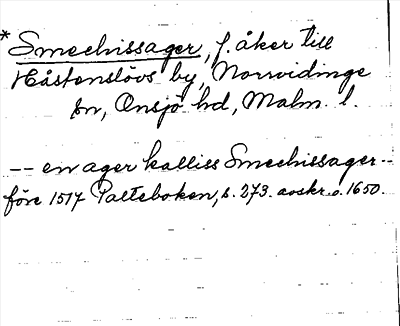 * Smechissager, f. åker till
Håstenslövs by, Norrvidinge
sn, Onsjö hd, Malm. l.
-- en ager kalliss Smechissager --
före 1517 Palteboken, s. 273. avskr. o. 1650.